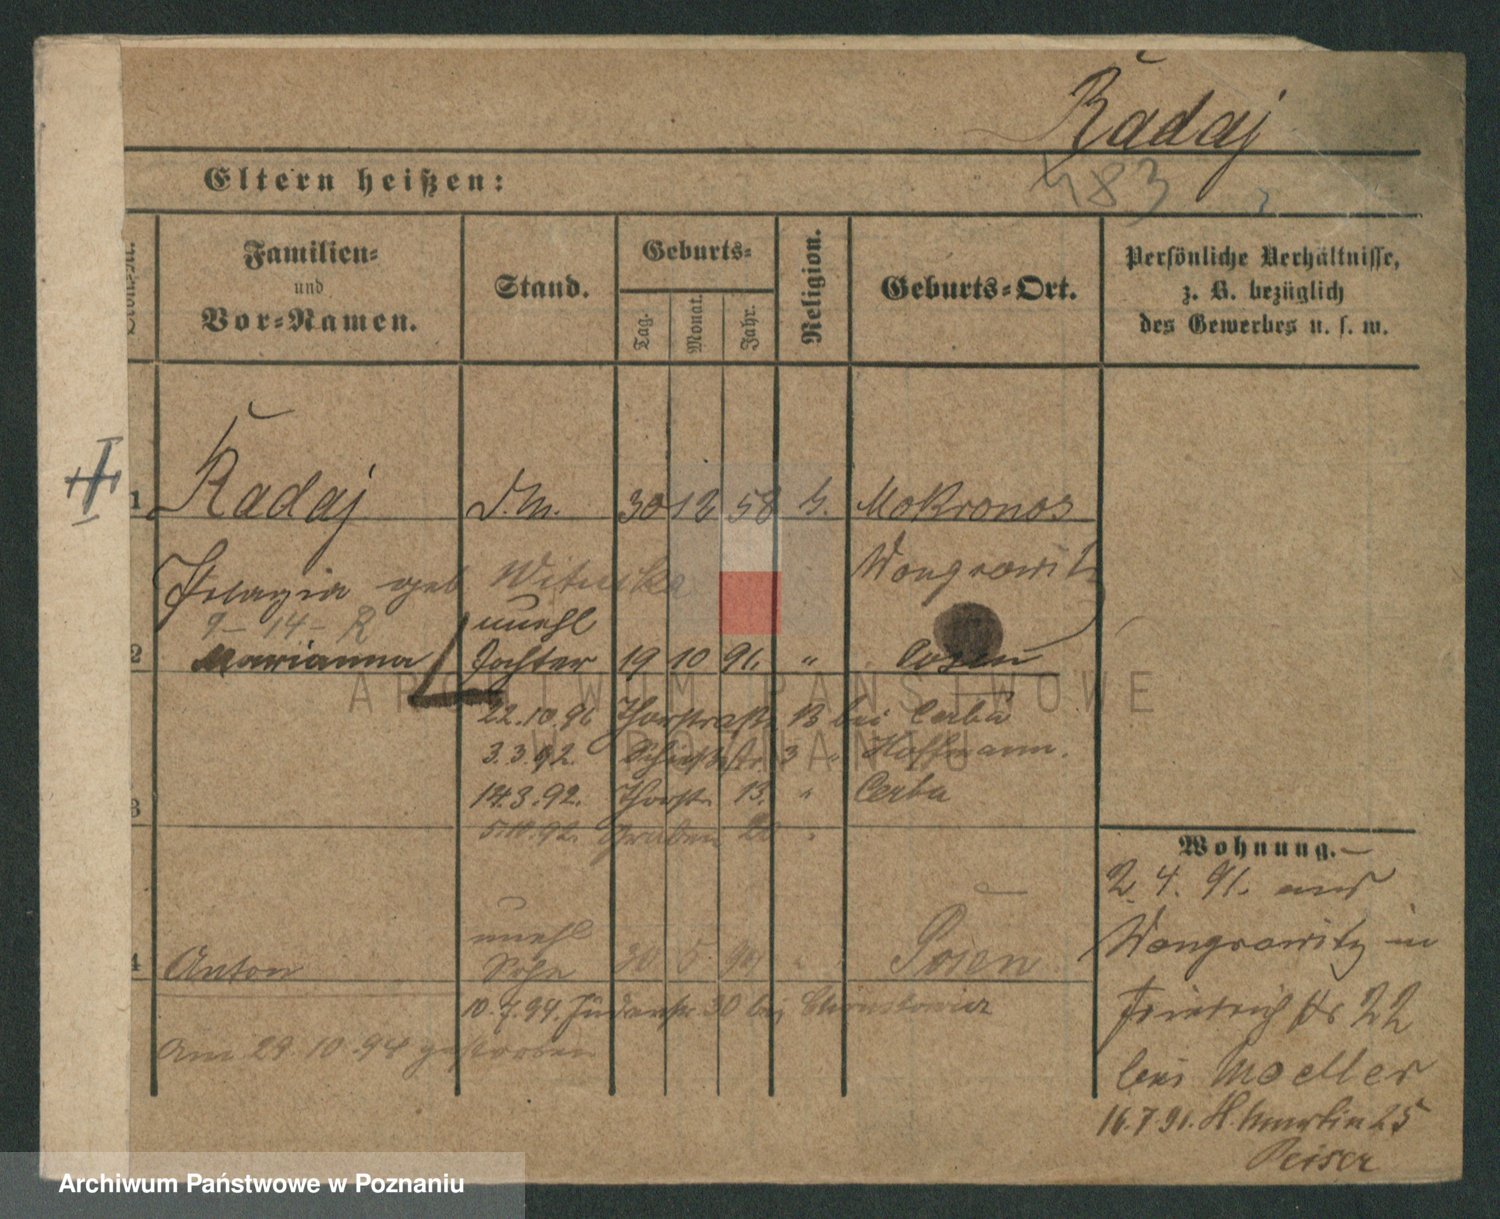 Radaj
483
Eltern heißen:
Familien- und Vor-Namen.
Stand.
Geburts-
Tag.
Monat.
Jahr.
Religion.
Geburts-Ort.
Persönliche Verhältnisse,
z. B. bezüglich
des Gewerbes u. s. w.
1 Radaj D.M. 30 12 58 k. Mokronos
Pelagia geb Wongrowitz
9-14-R unehl
2 Marianna Tochter 19 10 91. " Posen
22.10.91 Thorstraße 13 bei Cerba
3.3.92. 3 " Hoffmann.
14.3.92. Thorstr. 13. " Cerba
3
5.10.92. Graben
Wohnung.
2.4.91. aus
Wongrowitz in
Friedrichstr 22
bei Moeller
16.7.91. St. Martin 25
Peiser
unehl
4 Anton Sohn 30 5 94 " Posen
10.7.94. Judenstr 30 bei
am 29 10 94 gestorben
ARCHIWUM PAŃSTWOWE
W POZNANIU
Archiwum Państwowe w Poznaniu